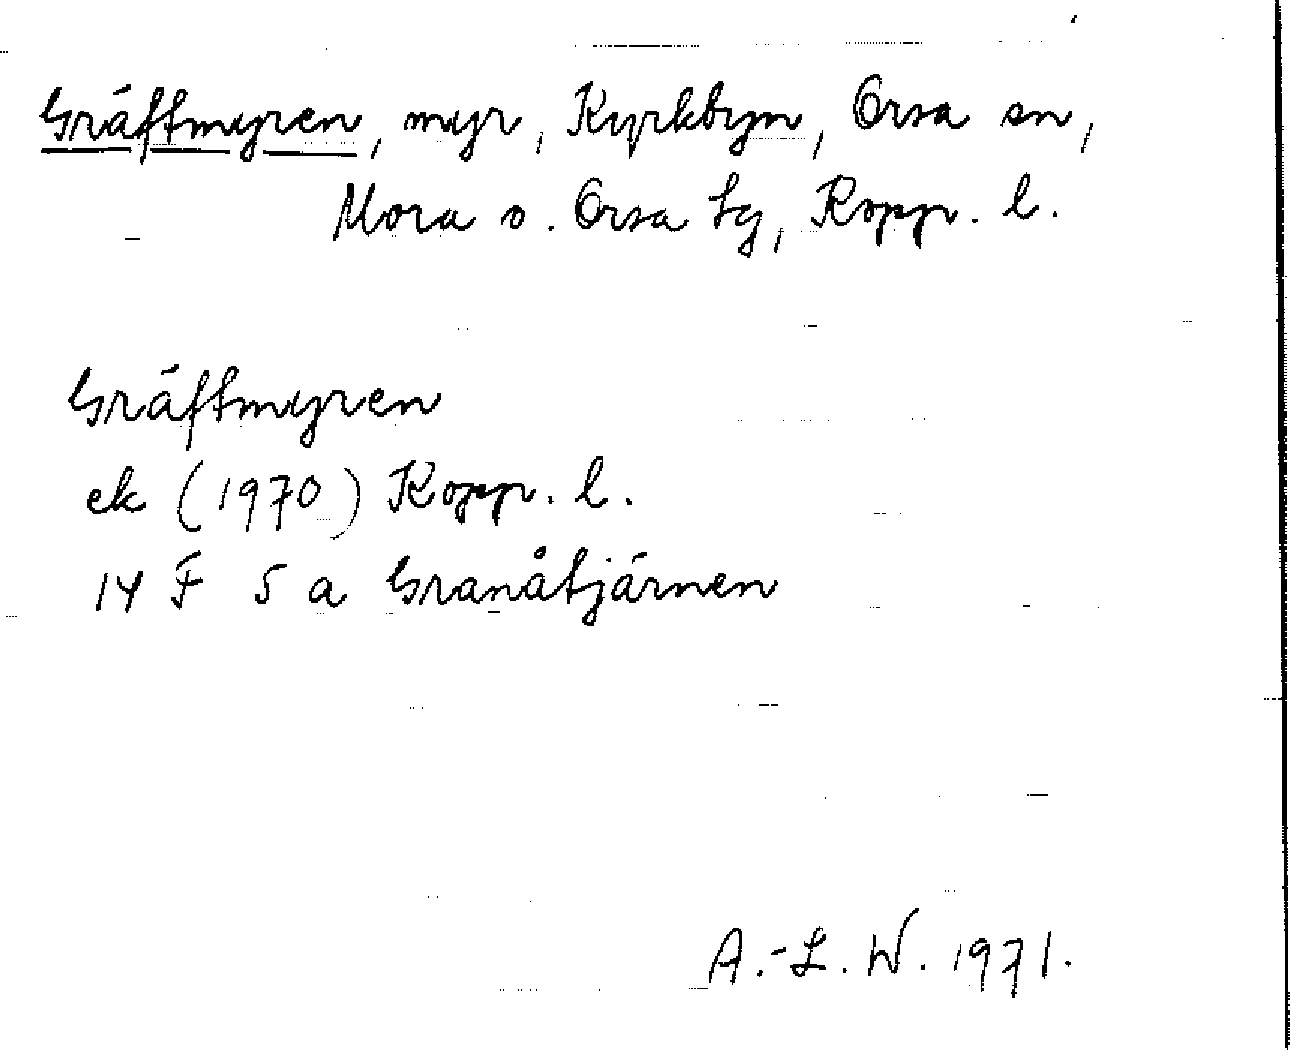 Gräftmyren, myr, Kyrkbyn, Orsa sn,
Mora o. Orsa tg, Kopp. l.
Gräftmyren
ek (1970) Kopp. l.
14 F 5 a Granåtjärnen
A.-L. W. 1971.